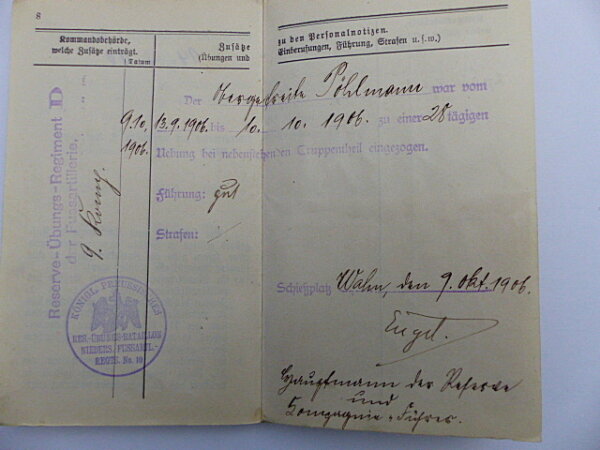 8
Kommandobehörde,
welche Zusätze einträgt.
Datum
Zusätze
(Übungen und
zu den Personalnotizen.
Einberufungen, Führung, Strafen u.s.w.)
Reserve-Übungs-Regiment D
der Fussartillerie.
9.
9.10.
1906.
Der Obergefreite Pöhlmann war vom
13.9.1906. bis 10. 10. 1906 zu einer 28 tägigen
Uebung bei nebenstehenden Truppentheil eingezogen.
Führung: gut
Strafen:
Schießplatz Wahn, den 9. Okt. 1906.
Engel.
Hauptmann der Reserve
und
Kompagnie-Führer.
KÖNIGL. PREUSSISCHES
RES.-ÜBUNGS-BATAILLON
NIEDERS. FUSSARTL.-
REGTS. No. 10